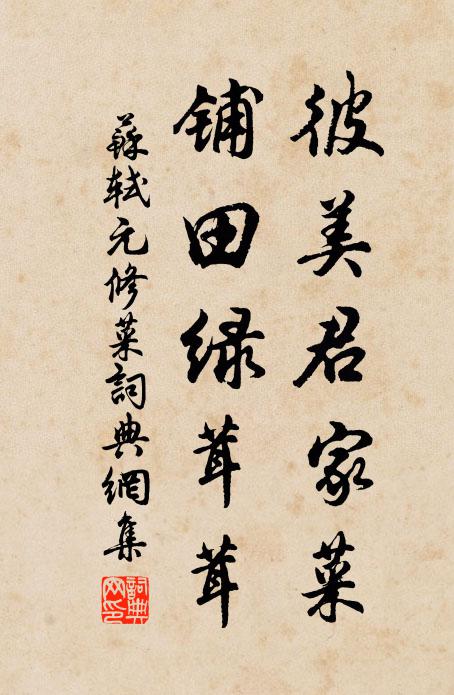 彼美君家菜
铺田绿茸茸
蘇軾元修菜詞典網集
詞典
网印